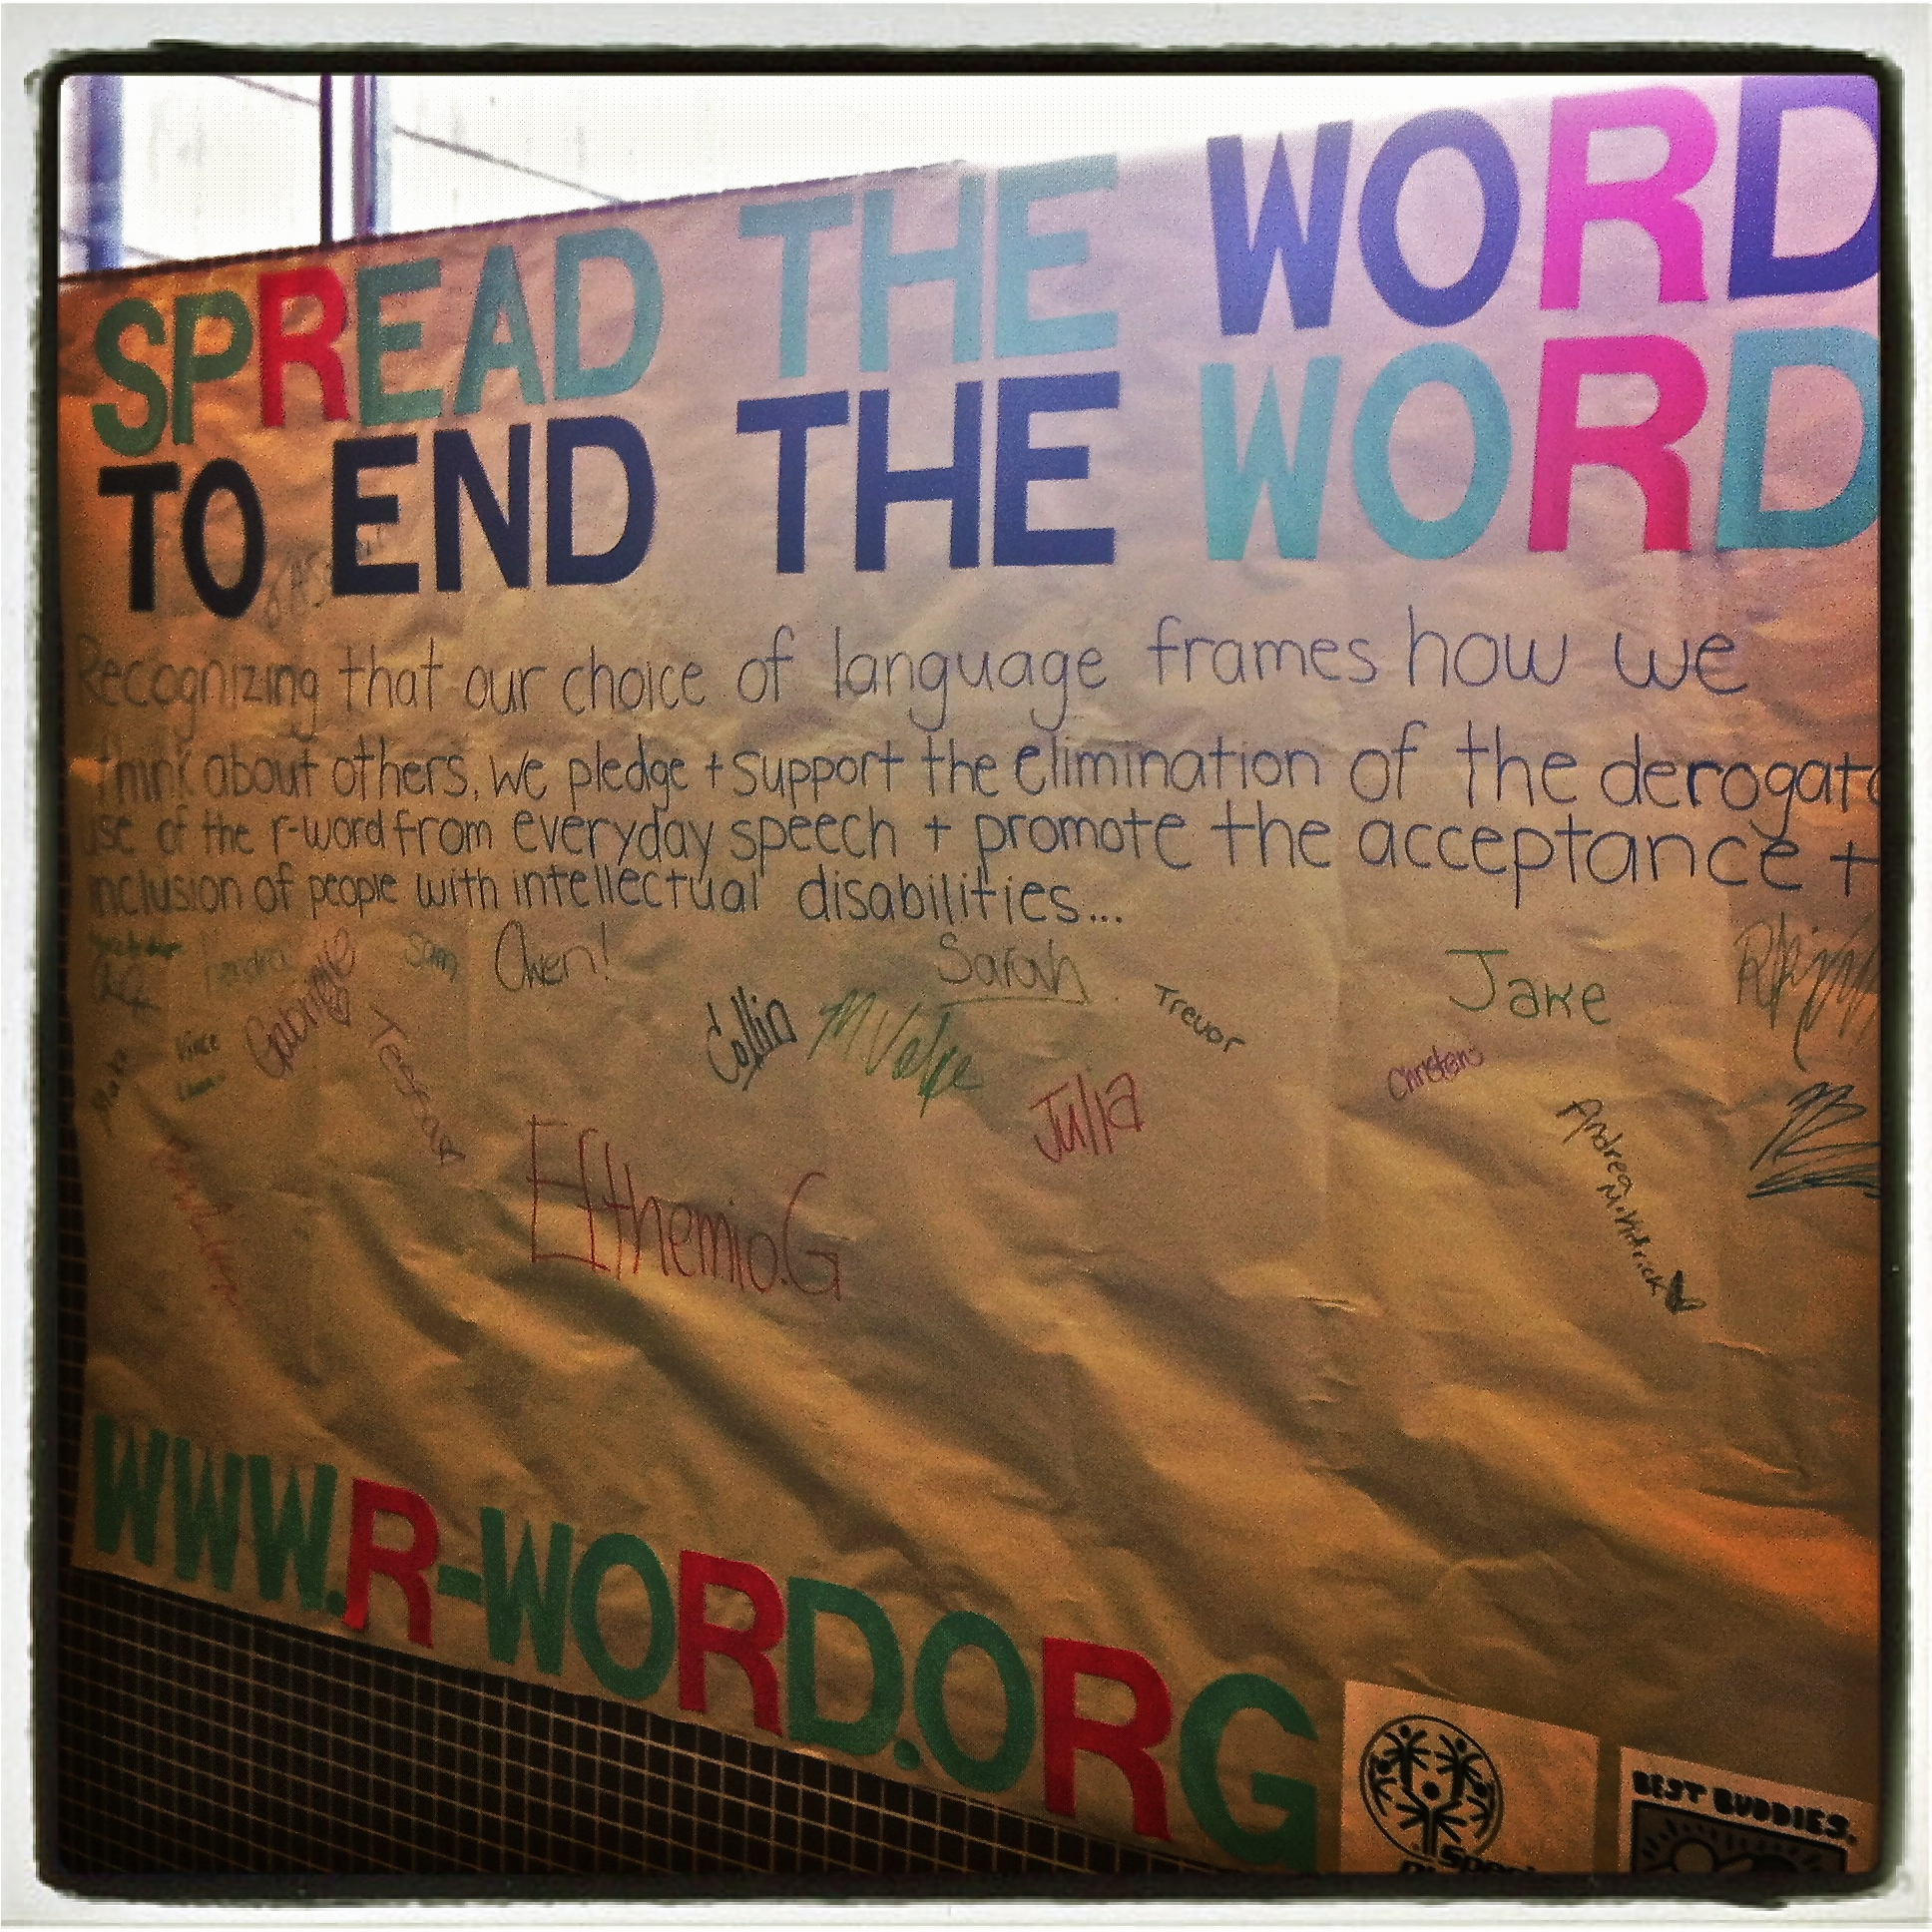 SPREAD THE WORD
TO END THE WORD
Recognizing that our choice of language frames how we
think about others, we pledge + support the elimination of the derogato
use of the r-word from everyday speech + promote the acceptance +
inclusion of people with intellectual disabilities...
Sam
Owen!
Sarah
Jake
Gabrielle
Collin
Trevor
Vince
Julia
Efthemio.G
Andrea
WWW.R-WORD.ORG
BEST BUDDIES.